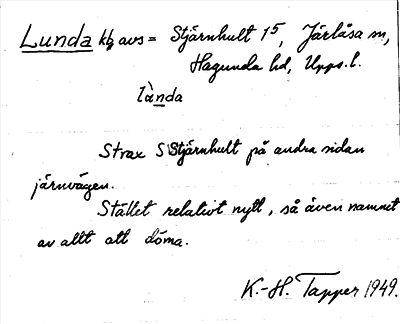 Lunda kbg avs = Stjärnhult 1⁵, Järlåsa sn,
Hagunda hd, Upps.l.
lànda
Strax S Stjärnhult på andra sidan
järnvägen.
Stället relativt nytt, så även namnet
av allt att döma.
K.-H. Tapper 1949.